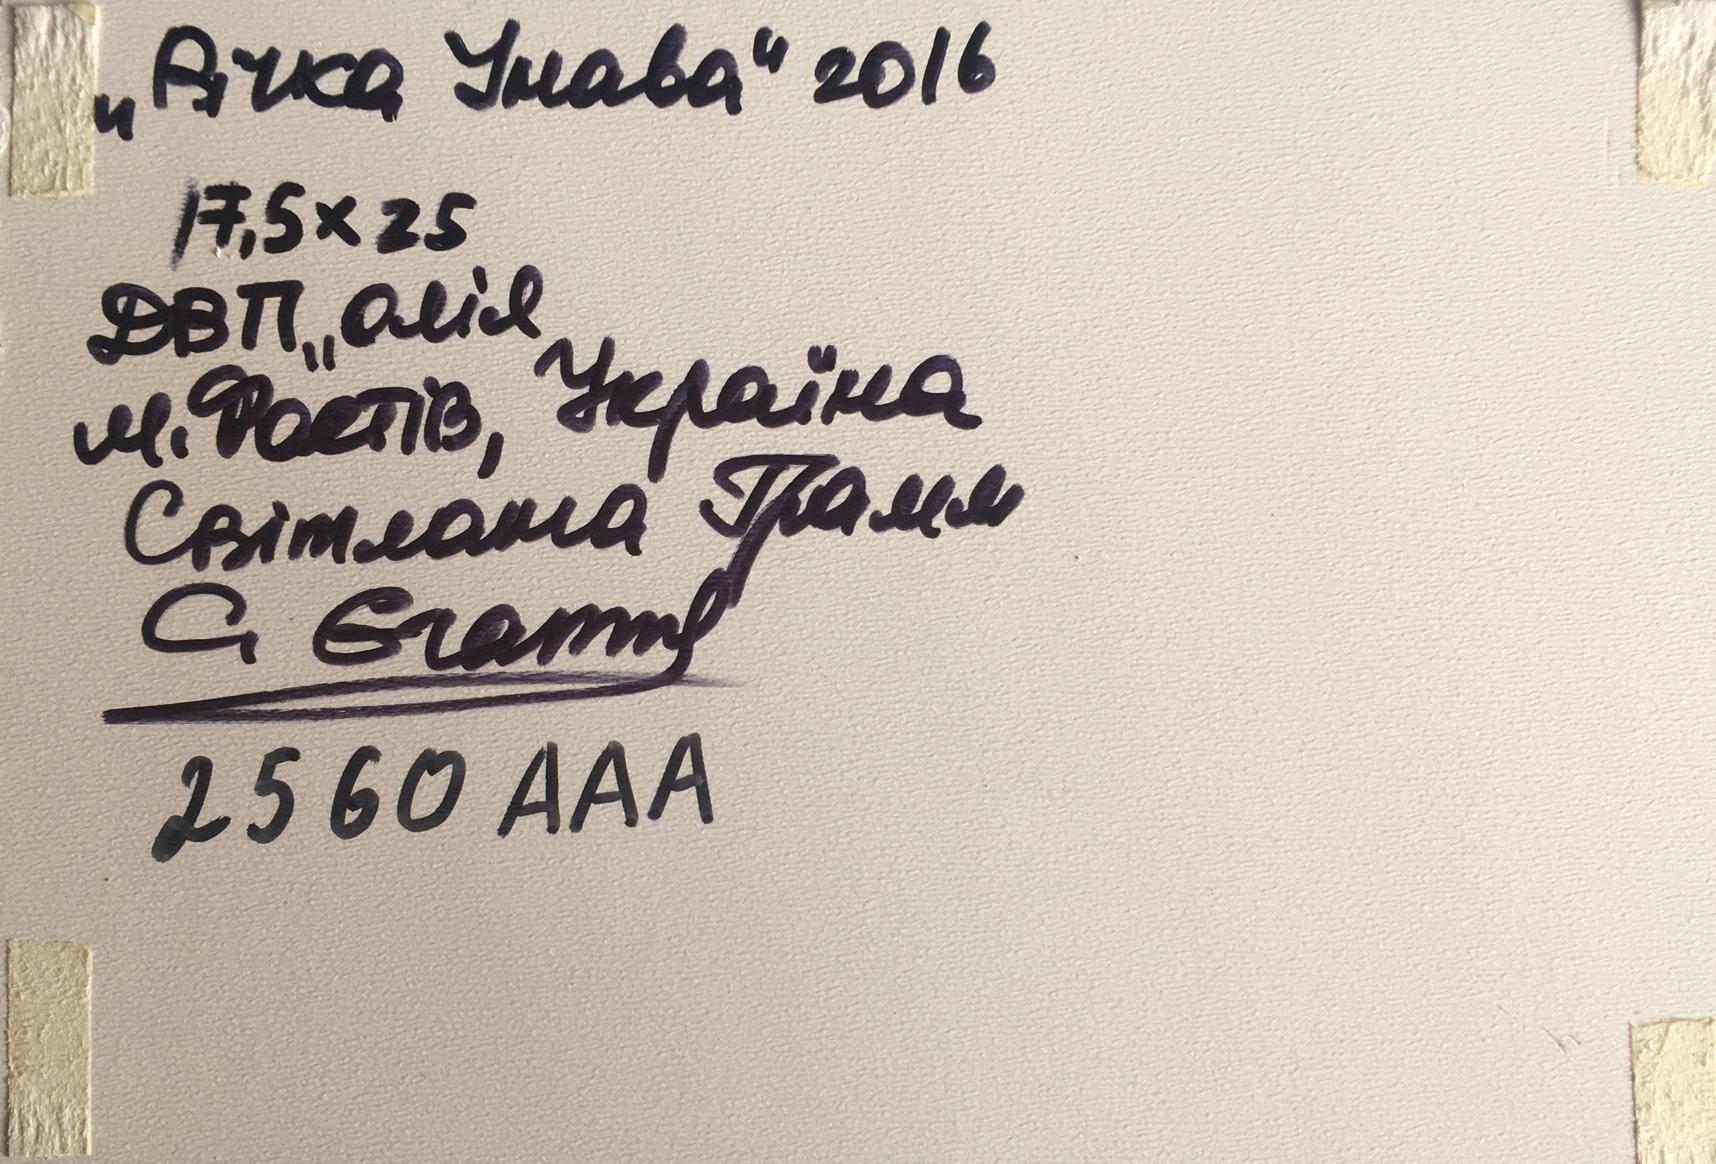 „Річка Унава" 2016
17,5х25
ДВП„олія
м. Фастів, Україна
Світлана Грамм
С. Gramm
2560 AAA